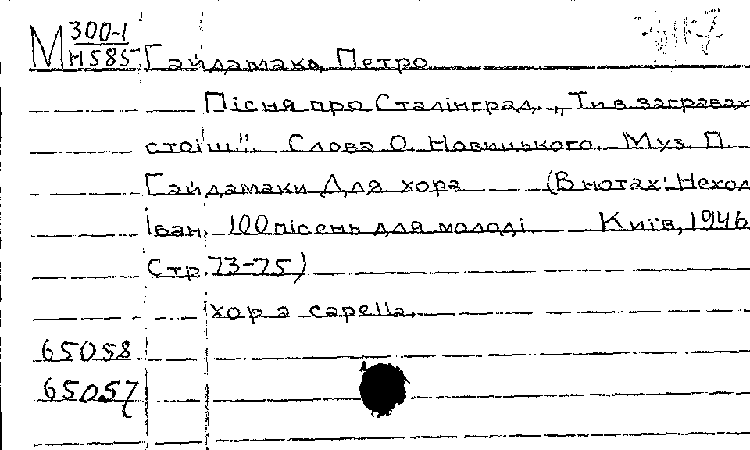 М 300-1
Н585 Гайдамака, Петро
Пісня про Сталінград. „Ти в загравах
стоїш". Слова О. Новицького. Муз. П.
Гайдамаки Для хора (В нотах: Неход
Іван. 100 пісень для молоді Київ, 1946
Стр. 73-75)
хор a capella.
65058
65057